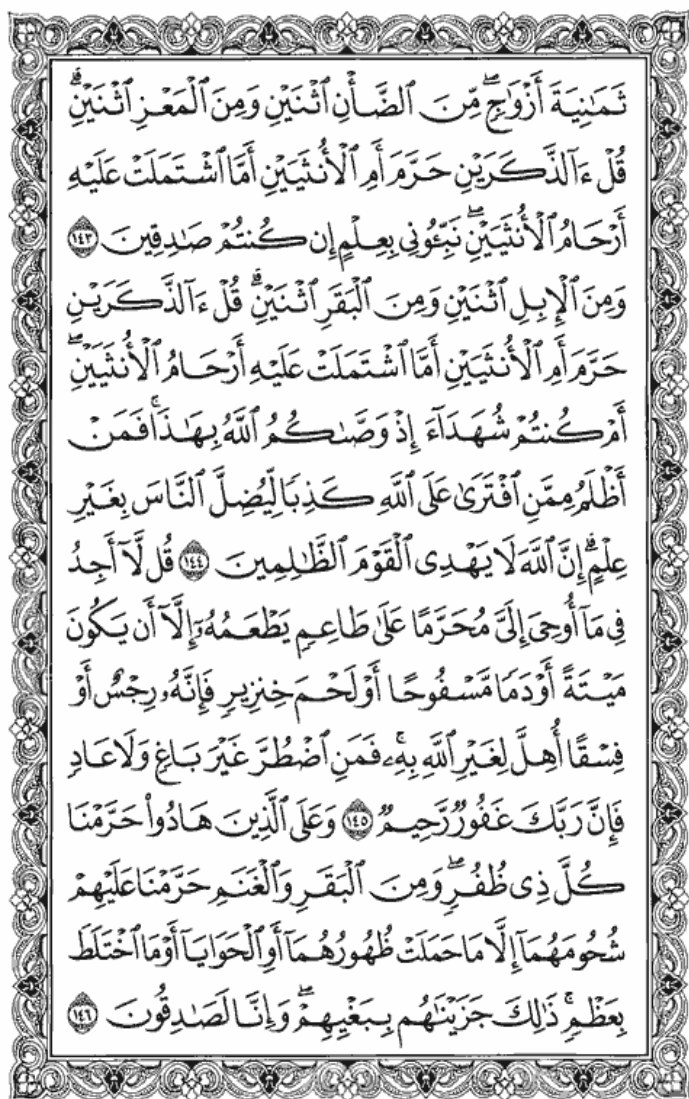 ثَمَٰنِيَةَ أَزْوَٰجٍۖ مِّنَ ٱلضَّأْنِ ٱثْنَيْنِ وَمِنَ ٱلْمَعْزِ ٱثْنَيْنِۗ
قُلْ ءَآلذَّكَرَيْنِ حَرَّمَ أَمِ ٱلْأُنثَيَيْنِ أَمَّا ٱشْتَمَلَتْ عَلَيْهِ
أَرْحَامُ ٱلْأُنثَيَيْنِۖ نَبِّـُٔونِي بِعِلْمٍ إِن كُنتُمْ صَٰدِقِينَ ١٤٣
وَمِنَ ٱلْإِبِلِ ٱثْنَيْنِ وَمِنَ ٱلْبَقَرِ ٱثْنَيْنِۗ قُلْ ءَآلذَّكَرَيْنِ
حَرَّمَ أَمِ ٱلْأُنثَيَيْنِ أَمَّا ٱشْتَمَلَتْ عَلَيْهِ أَرْحَامُ ٱلْأُنثَيَيْنِۖ
أَمْ كُنتُمْ شُهَدَآءَ إِذْ وَصَّىٰكُمُ ٱللَّهُ بِهَٰذَاۚ فَمَنْ
أَظْلَمُ مِمَّنِ ٱفْتَرَىٰ عَلَى ٱللَّهِ كَذِبًا لِّيُضِلَّ ٱلنَّاسَ بِغَيْرِ
عِلْمٍۗ إِنَّ ٱللَّهَ لَا يَهْدِى ٱلْقَوْمَ ٱلظَّٰلِمِينَ ١٤٤ قُل لَّآ أَجِدُ
فِى مَآ أُوحِىَ إِلَىَّ مُحَرَّمًا عَلَىٰ طَاعِمٍ يَطْعَمُهُۥٓ إِلَّآ أَن يَكُونَ
مَيْتَةً أَوْ دَمًا مَّسْفُوحًا أَوْ لَحْمَ خِنزِيرٍ فَإِنَّهُۥ رِجْسٌ أَوْ
فِسْقًا أُهِلَّ لِغَيْرِ ٱللَّهِ بِهِۦۚ فَمَنِ ٱضْطُرَّ غَيْرَ بَاغٍ وَلَا عَادٍ
فَإِنَّ رَبَّكَ غَفُورٌ رَّحِيمٌ ١٤٥ وَعَلَى ٱلَّذِينَ هَادُوا۟ حَرَّمْنَا
كُلَّ ذِى ظُفُرٍۖ وَمِنَ ٱلْبَقَرِ وَٱلْغَنَمِ حَرَّمْنَا عَلَيْهِمْ
شُحُومَهُمَآ إِلَّا مَا حَمَلَتْ ظُهُورُهُمَآ أَوِ ٱلْحَوَايَآ أَوْ مَا ٱخْتَلَطَ
بِعَظْمٍۚ ذَٰلِكَ جَزَيْنَٰهُم بِبَغْيِهِمْۖ وَإِنَّا لَصَٰدِقُونَ ١٤٦